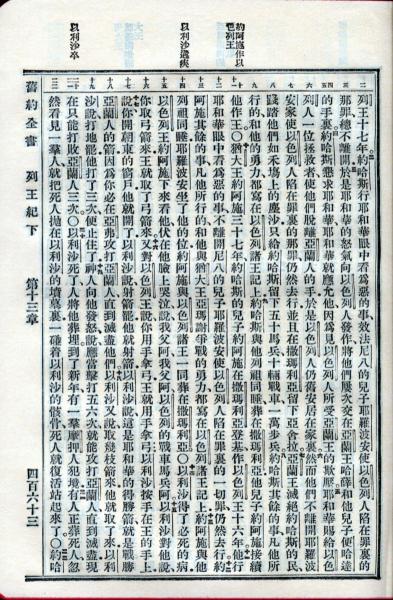 約阿施作以色列王
以利沙遘疾
以利沙卒
列王十七年約哈斯行耶和華眼中看爲惡的事效法尼八的兒子耶羅波安使以色列人陷在罪裏的
那罪總不離開於是耶和華的怒氣向以色列人發作將他們屢次交在亞蘭王哈薛和他兒子便哈達
的手裏約哈斯懇求耶和華耶和華就應允他因爲見以色列人所受亞蘭王的欺壓耶和華賜給以色
列人一位拯救者使他們脫離亞蘭人的手於是以色列人仍舊安居在家裏然而他們不離開耶羅波
安家使以色列人陷在罪裏的那罪仍然去行並且在撒瑪利亞留下亞舍拉亞蘭王滅絕約哈斯的民
踐踏他們如禾場上的塵沙只給約哈斯留下五十馬兵十輛戰車一萬步兵約哈斯其餘的事凡他所
行的和他的勇力都寫在以色列諸王記上約哈斯與他列祖同睡葬在撒瑪利亞他兒子約阿施接續
他作王○猶大王約阿施三十七年約哈斯的兒子約阿施在撒瑪利亞登基作以色列王十六年他行
耶和華眼中看爲惡的事不離開尼八的兒子耶羅波安使以色列人陷在罪裏的一切罪仍然去行約
阿施其餘的事凡他所行的和他與猶大王亞瑪謝爭戰的勇力都寫在以色列諸王記上約阿施與他
列祖同睡耶羅波安坐了他的位約阿施與以色列諸王一同葬在撒瑪利亞○以利沙得了必死的病
以色列王約阿施下來看他伏在他臉上哭泣說我父阿我父阿以色列的戰車馬兵阿以利沙對他說
你取弓箭來王就取了弓箭來又對以色列王說你用手拿弓王就用手拿弓以利沙按手在王的手上
說你開朝東的窗戶他就開了以利沙說射箭罷他就射箭以利沙說這是耶和華的得勝箭就是戰勝
亞蘭人的箭因爲你必在亞弗攻打亞蘭人直到滅盡他們以利沙又說取幾枝箭來他就取了來以利
沙說打地罷他打了三次便止住了神人向他發怒說應當擊打五六次就能攻打亞蘭人直到滅盡現
在只能打敗亞蘭人三次○以利沙死了人將他葬埋到了新年有一羣摩押人犯境有人正葬死人忽
然看見一羣人就把死人抛在以利沙的墳墓裏一碰着以利沙的骸骨死人就復活站起來了○約哈
舊約全書 列王紀下 第十三章 四百六十三